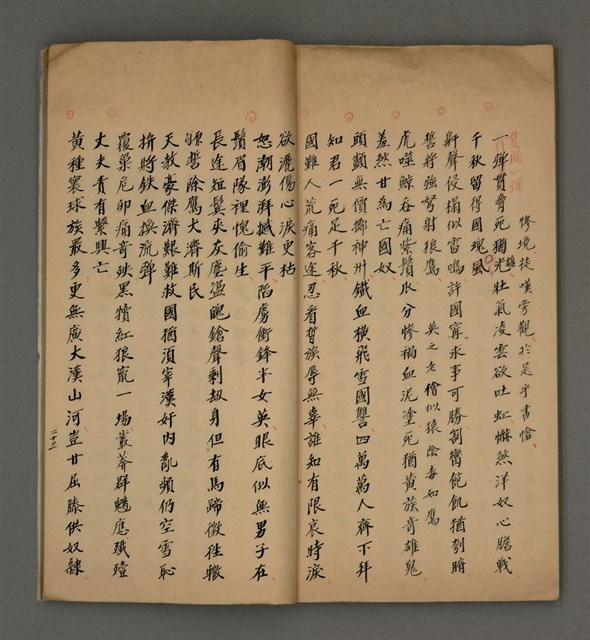 慘境徒嘆旁觀於是乎書愴
一彈貫脅死猶雄壯氣凌雲欲吐虹慚然洋奴心膽戰
千秋留得國魂風
鼾聲侵搨似雷鳴許國甯求事可勝割臠飽飢猶刳暗
誓將強弩射狼鷹 英之老僧似猿陰毒如鷹
虎噬鯨吞痛紫鬚瓜分慘禍血泥塗死猶黃族奇雄鬼
羞然甘為亡國奴
頭顱無價擲神州鐵血橫飛雪國讐四萬萬人齊下拜
知君一死足千秋
國難人荒痛客途忍看哲族辱無辜誰知有限哀時淚
欲灑傷心淚更枯
怒潮澎湃撼難平陷虜衝鋒半女英眼底似無男子在
鬚眉隊裡愧偷生
長途短鬢夾灰塵盪飽鎗聲剩刼身但有馬蹄徵往轍
誓除鷹犬濟斯民
天教豪傑濟艱難救國猶須宰漢奸內亂頻仍空雪恥
拚將鉄血換流彈
覆巢危卵痛奇殃黑犢紅狼竄一場叢莽群魑應殲殪
丈夫責有繫興亡
黃種寰球族最多更無廣大漢山河豈甘屈膝供奴隸
二十三